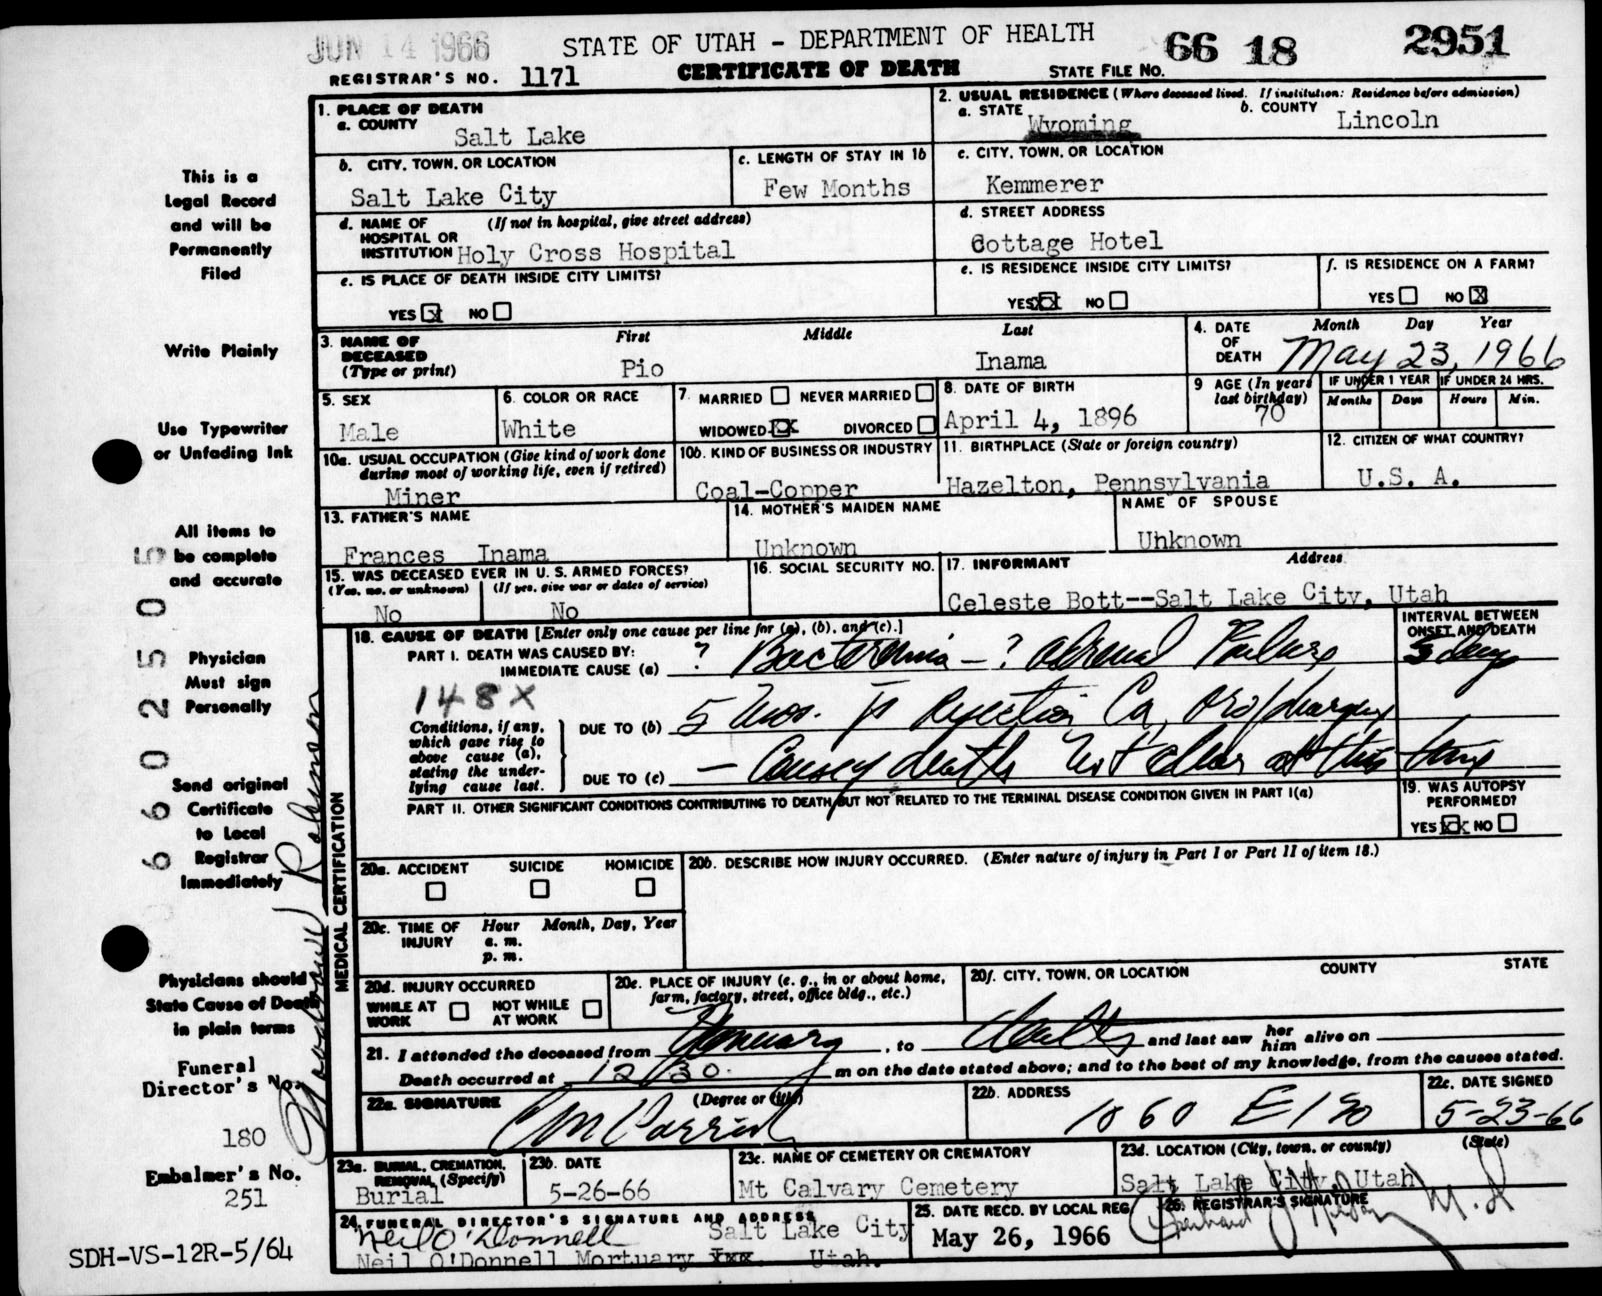 JUN 14 1966
STATE OF UTAH - DEPARTMENT OF HEALTH
66 18 2951
REGISTRAR'S NO. 1171 CERTIFICATE OF DEATH STATE FILE NO.
1. PLACE OF DEATH
a. COUNTY
Salt Lake
2. USUAL RESIDENCE (Where deceased lived. If institution: Residence before admission)
a. STATE Wyoming b. COUNTY Lincoln
b. CITY, TOWN, OR LOCATION
Salt Lake City
c. LENGTH OF STAY IN 1b
Few Months
c. CITY, TOWN, OR LOCATION
Kemmerer
d. NAME OF (If not in hospital, give street address)
HOSPITAL OR
INSTITUTION Holy Cross Hospital
d. STREET ADDRESS
Cottage Hotel
e. IS PLACE OF DEATH INSIDE CITY LIMITS?
YES X NO
e. IS RESIDENCE INSIDE CITY LIMITS?
YES XX NO
f. IS RESIDENCE ON A FARM?
YES NO X
3. NAME OF
DECEASED
(Type or print)
First Middle Last
Pio Inama
4. DATE
OF
DEATH
Month Day Year
May 23, 1966
5. SEX
Male
6. COLOR OR RACE
White
7. MARRIED NEVER MARRIED
WIDOWED XX DIVORCED
8. DATE OF BIRTH
April 4, 1896
9 AGE (In years
last birthday)
70
IF UNDER 1 YEAR IF UNDER 24 HRS.
Months Days Hours Min.
10a. USUAL OCCUPATION (Give kind of work done
during most of working life, even if retired)
Miner
10b. KIND OF BUSINESS OR INDUSTRY
Coal-Copper
11. BIRTHPLACE (State or foreign country)
Hazelton, Pennsylvania
12. CITIZEN OF WHAT COUNTRY?
U.S. A.
13. FATHER'S NAME
Frances Inama
14. MOTHER'S MAIDEN NAME
Unknown
NAME OF SPOUSE
Uhknown
15. WAS DECEASED EVER IN U. S. ARMED FORCES?
(Yes, no, or unknown) (If yes, give war or dates of service)
No No
16. SOCIAL SECURITY NO.
17. INFORMANT Address
Celeste Bott--Salt Lake City, Utah
18. CAUSE OF DEATH [Enter only one cause per line for (a), (b), and (c).]
INTERVAL BETWEEN
ONSET AND DEATH
PART I. DEATH WAS CAUSED BY:
IMMEDIATE CAUSE (a) ? Bacteremia - ? adrenal Failure 3 days
148X
Conditions, if any,
which gave rise to
above cause (a),
stating the under-
lying cause last.
DUE TO (b) 5 mos. Ca,
DUE TO (c) - Cause of death not clear at this time
PART II. OTHER SIGNIFICANT CONDITIONS CONTRIBUTING TO DEATH BUT NOT RELATED TO THE TERMINAL DISEASE CONDITION GIVEN IN PART I(a)
19. WAS AUTOPSY
PERFORMED?
YES XX NO
20a. ACCIDENT SUICIDE HOMICIDE
20b. DESCRIBE HOW INJURY OCCURRED. (Enter nature of injury in Part I or Part II of item 18.)
20c. TIME OF
INJURY
Hour Month, Day, Year
a. m.
p. m.
20d. INJURY OCCURRED
WHILE AT
WORK
NOT WHILE
AT WORK
20e. PLACE OF INJURY (e. g., in or about home,
farm, factory, street, office bldg., etc.)
20f. CITY, TOWN, OR LOCATION COUNTY STATE
21. I attended the deceased from January, to death and last saw her him alive on
Death occurred at 12/30. m on the date stated above; and to the best of my knowledge, from the causes stated.
22a. SIGNATURE (Degree or title)
22b. ADDRESS
1060 E 1 So
22c. DATE SIGNED
5-23-66
23a. BURIAL, CREMATION,
REMOVAL (Specify)
Burial
23b. DATE
5-26-66
23c. NAME OF CEMETERY OR CREMATORY
Mt Calvary Cemetery
23d. LOCATION (City, town, or county) (State)
Salt Lake City, Utah
24. FUNERAL DIRECTOR'S SIGNATURE AND ADDRESS
Neil O'Donnell Salt Lake City
Neil O'Donnell Mortuary xxx. Utah.
25. DATE RECD. BY LOCAL REG.
May 26, 1966
26. REGISTRAR'S SIGNATURE
M. D
MEDICAL CERTIFICATION
This is a
Legal Record
and will be
Permanently
Filed
Write Plainly
Use Typewriter
or Unfading Ink
All items to
be complete
and accurate
Physician
Must sign
Personally
Send original
Certificate
to Local
Registrar
Immediately
Physicians should
State Cause of Death
in plain terms
Funeral
Director's No.
180
Embalmer's No.
251
SDH-VS-12R-5/64
660250505